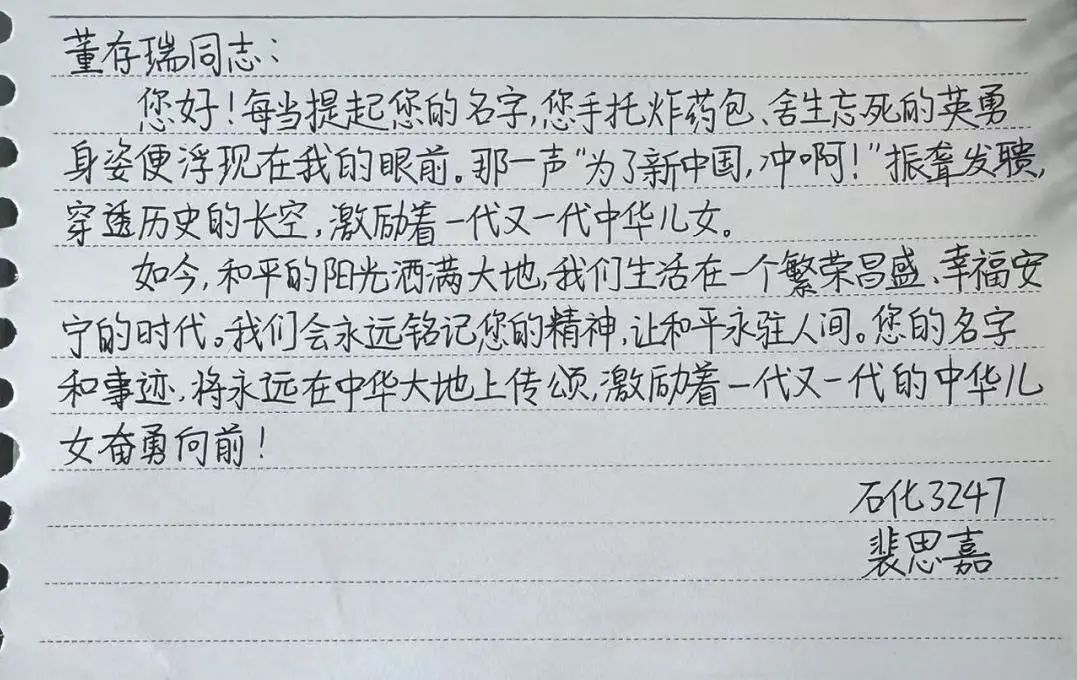 董存瑞同志：
您好！每当提起您的名字，您手托炸药包、舍生忘死的英勇
身姿便浮现在我的眼前。那一声“为了新中国，冲啊！”振聋发聩，
穿透历史的长空，激励着一代又一代中华儿女。
如今，和平的阳光洒满大地，我们生活在一个繁荣昌盛、幸福安
宁的时代。我们会永远铭记您的精神，让和平永驻人间。您的名字
和事迹，将永远在中华大地上传颂，激励着一代又一代的中华儿
女奋勇向前！
石化3247
裴思嘉